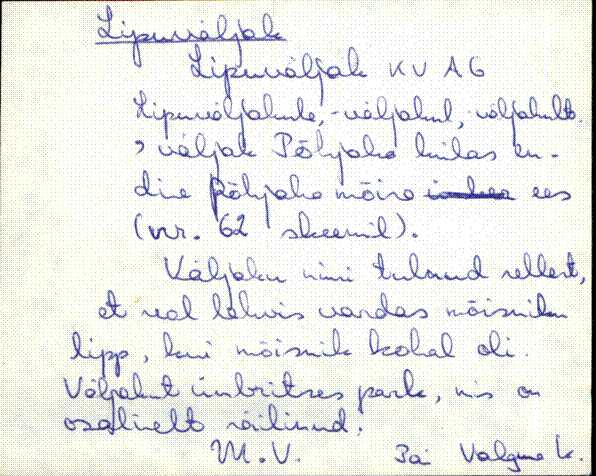 Lipuväljak
Lipuväljak KV AG
Lipuväljakule, -väljakul, -väljakult.
, väljak Põhjaka külas en-
dise Põhjaka mõisa ees
(nr. 62 skeemil).
Väljaku nimi tulnud sellest,
et seal lehvis vardas mõisniku
lipp, kui mõisnik kohal oli.
Väljakut ümbritses park, mis on
osaliselt säilinud.
M. V. Pai Valgma k.